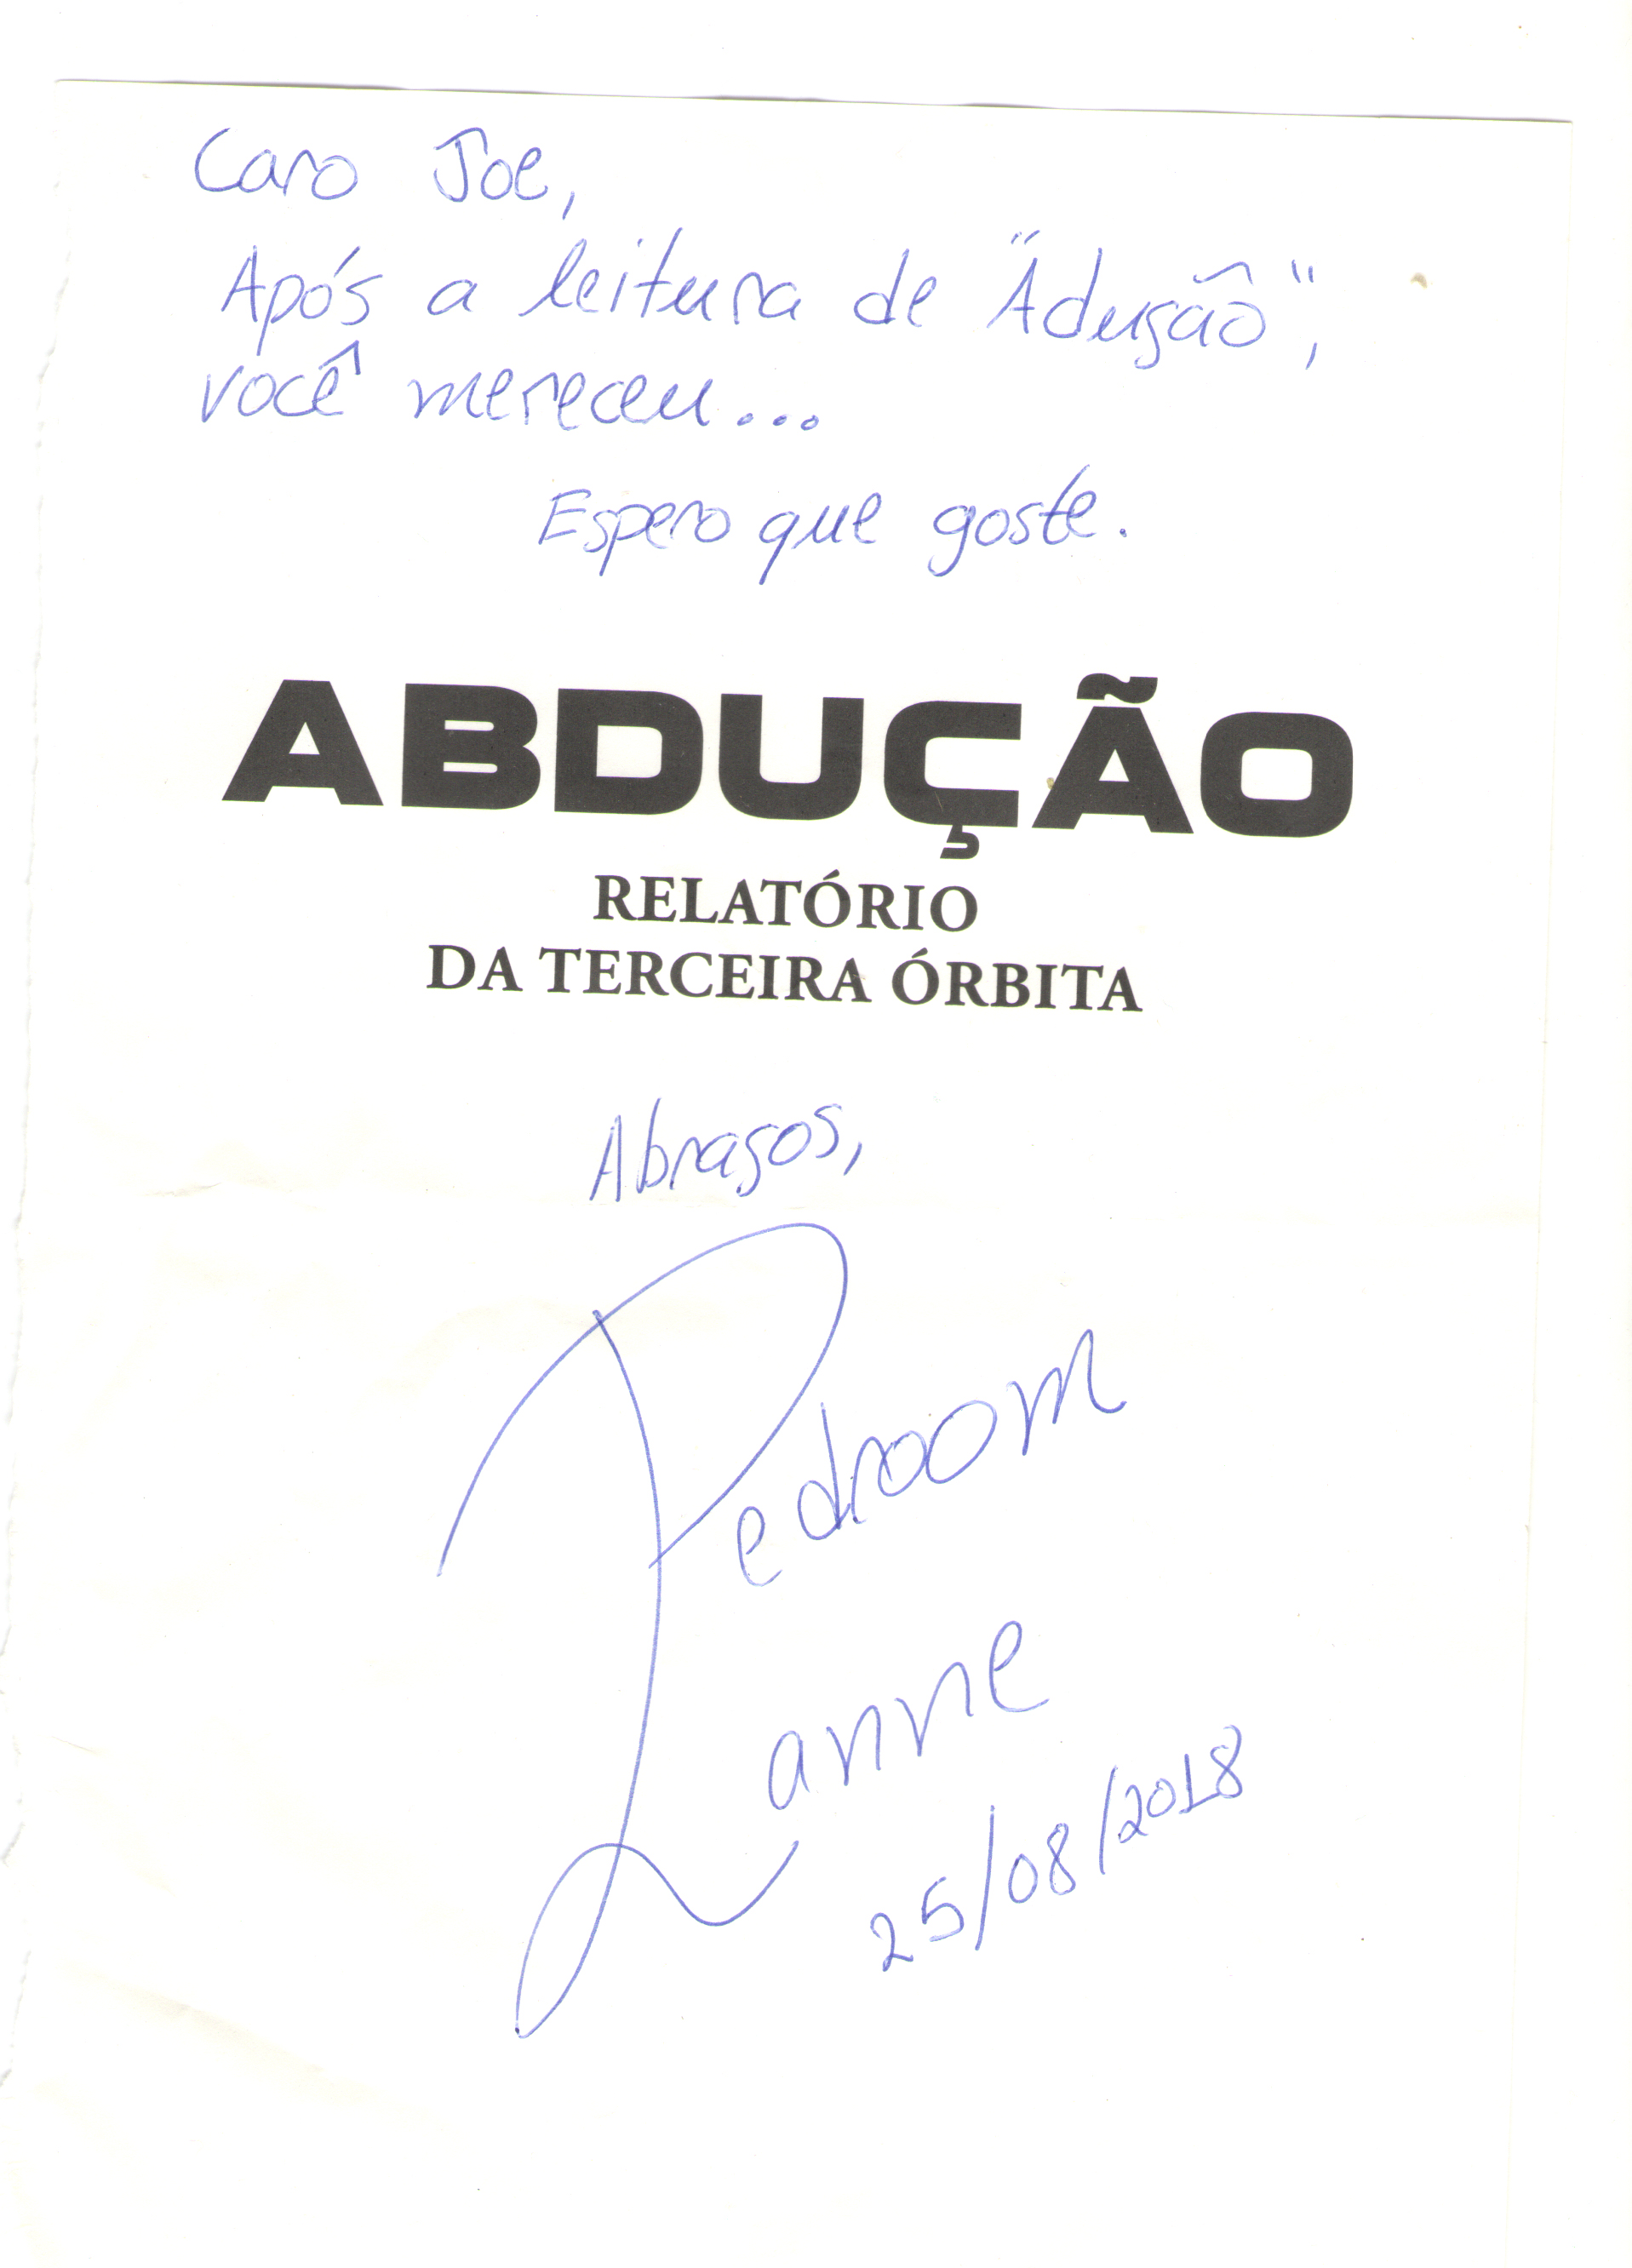 Caro Joe,
Após a leitura de "Adução",
você mereceu...
Espero que goste.
ABDUÇÃO
RELATÓRIO
DA TERCEIRA ÓRBITA
Abraços,
Pedroom
Lanne
25/08/2018